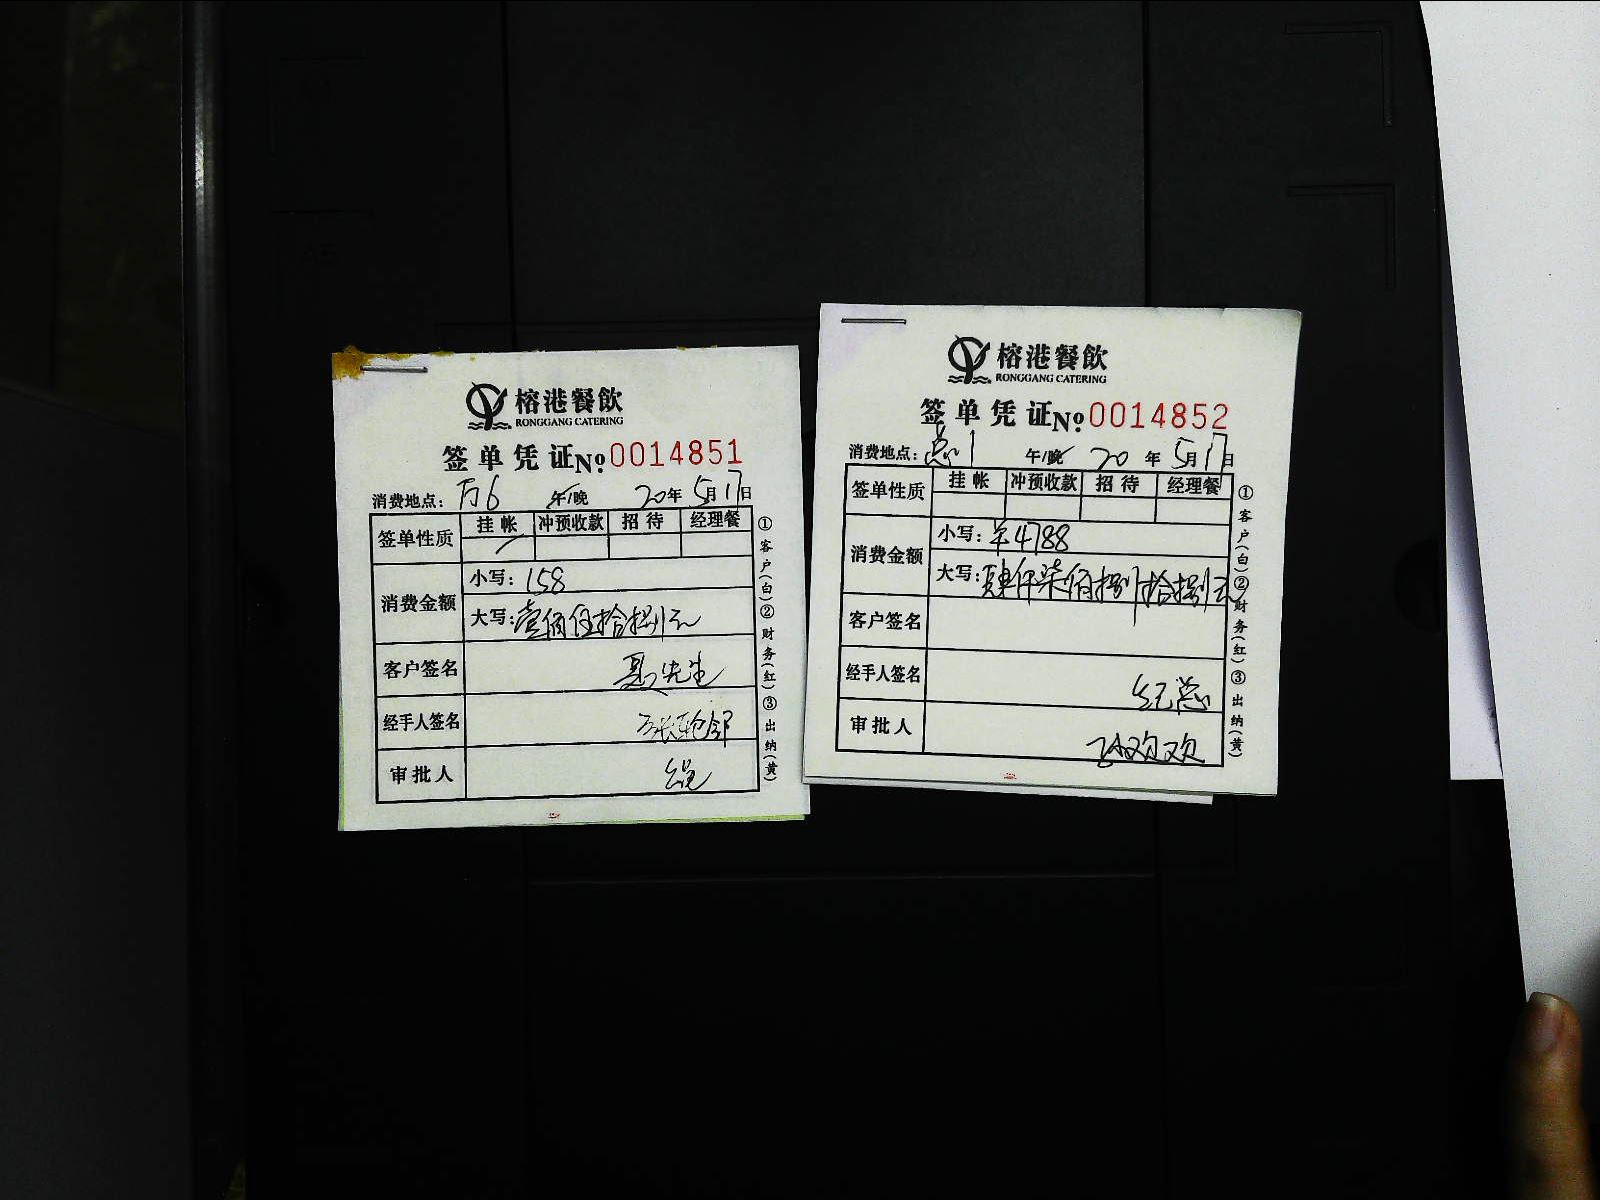 榕港餐飲
RONGGANG CATERING
签单凭证№0014851
消费地点：万6 午/晚 20年5月17日
签单性质 挂帐 冲预收款 招待 经理餐
消费金额 小写：158
大写：壹佰伍拾捌元
客户签名 聂先生
经手人签名
审批人
①客户(白)②财务(红)③出纳(黄)
榕港餐飲
RONGGANG CATERING
签单凭证№0014852
消费地点： 午/晚 20年5月17日
签单性质 挂帐 冲预收款 招待 经理餐
消费金额 小写：¥4788
大写：肆仟柒佰捌拾捌元
客户签名
经手人签名 纪总
审批人 孙欢欢
①客户(白)②财务(红)③出纳(黄)